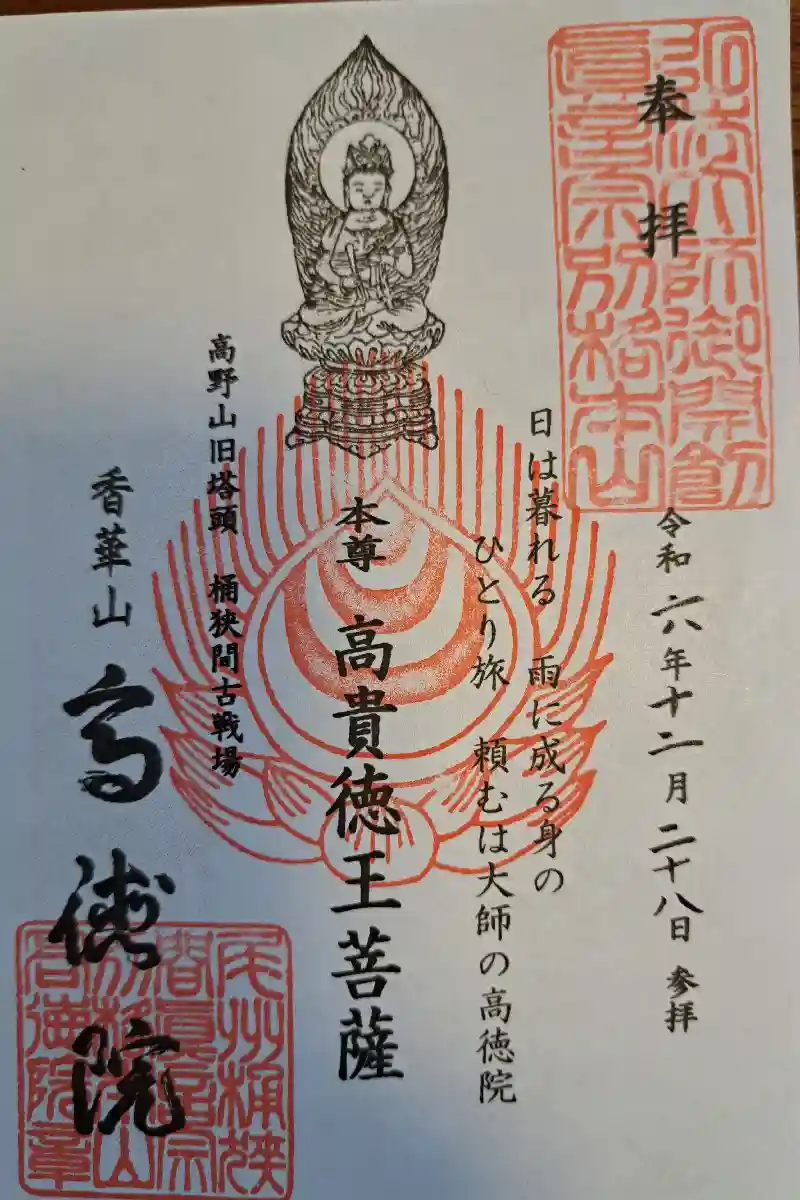 奉拝
弘法大師御開創
真言宗別格本山
令和六年十二月二十八日 参拝
日は暮れる 雨に成る身の
ひとり旅 頼むは大師の高徳院
本尊 高貴徳王菩薩
高野山旧塔頭 桶狭間古戦場
香華山
高徳院
尾州桶狭
間真言宗
別格本山
高徳院章